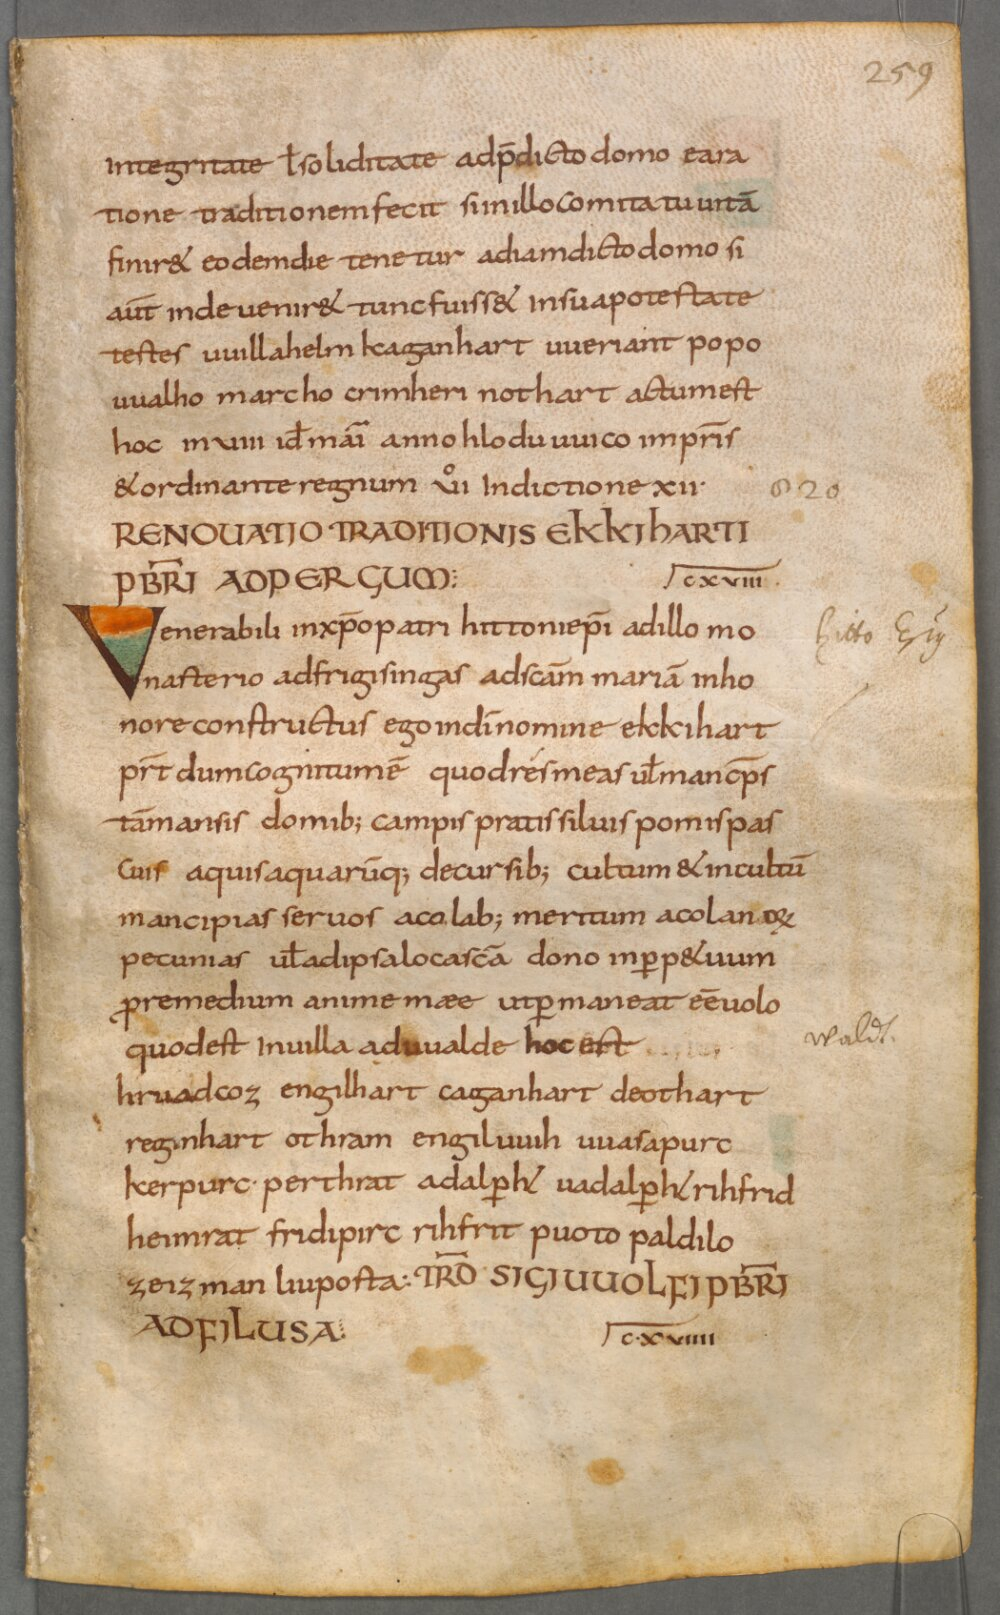 259
integritate ł soliditate ad p̄dicto domo ea ra
tione traditionem fecit si in illo comitatu uitā
finir& eodem die tenetur ad iam dicto domo si
aūt inde uenir& tunc fuiss& in sua potestate
testes uuillahelm kaganhart uueriant popo
uualho marcho crimheri nothart actum est
hoc in uiiii id maī anno hloduuuico imp̄ris
& ordinante regnum Indictione xii·
820
RENOUATIO TRADITIONIS EKKIHARTI
PB̄RI AD PERGUM:
cxviii
Venerabili in xp̄o patri hittoni ep̄i ad illo mo
hitto
nasterio ad frigisingas ad scām mariā in ho
nore constructus ego in dī nomine ekkihart
pr̄t dum cognitum ē quod res meas uł mancp̄s
tām mansis domib; campis pratis siluis pomis pas
cuis aquis aquarūq; decursib; cultum & incultū
mancipias seruos acolab; meritum acolan
pecunias uł ad ipsa loca scā dono in p̱p&uum
p̱remedium anime mæe ut p̱maneat eē uolo
quod est In uilla ad uualde hoc est
wald
hruadcoz engilhart caganhart deothart
reginhart othram engiluuih uuasapurc
kerpurc· perthrat adalp̱h uadalp̱h rihfrid
heimrat fridipirc rihfrit puoto paldilo
zeizman liuposta: TR̄D SIGIUUOLFI PB̄RI
AD FILUSA:
c·xviiii